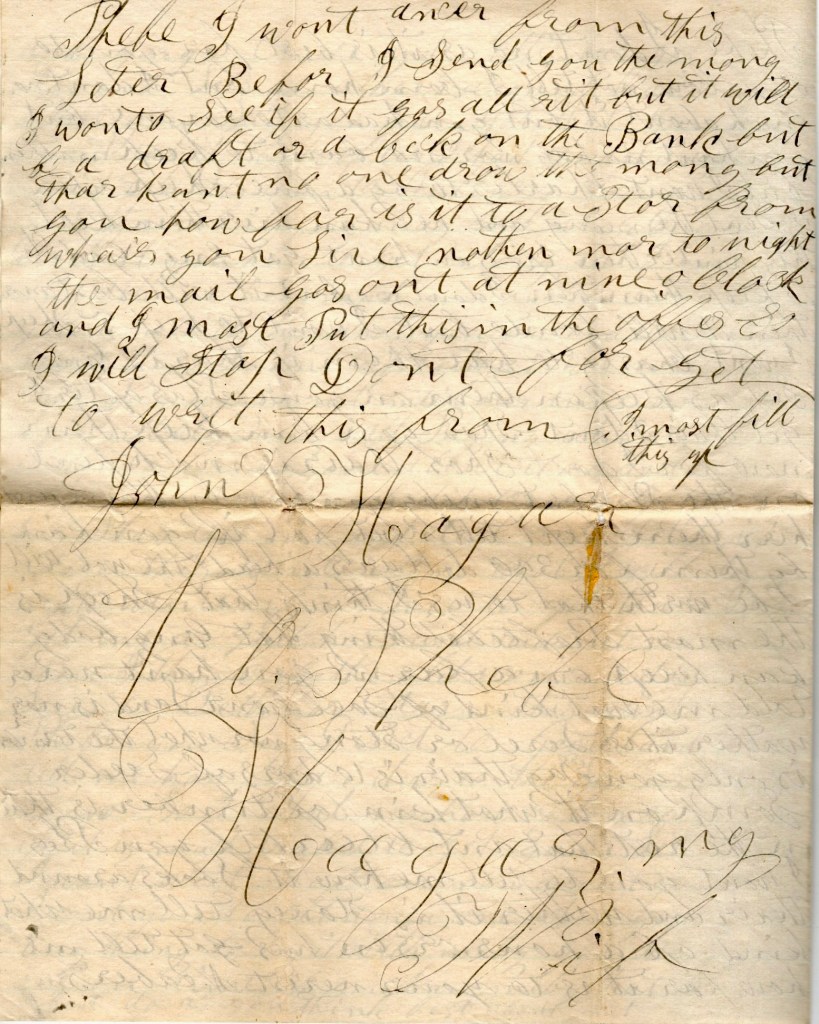 Phebe I wont ancer from this
Leter Befor I Send you the mony
I won to See if it gos all rit but it will
be a draft or a Check on the Bank but
thar kant no one drow the mony but
you how far is it to a Stor from
whare you Live nothen mor to night
the mail gos out at nine o Clock
and I most Put this in the offes So
I will Stop Dont for get
to writ this from
I most fill
this up
John Hagar
to Phebe
Hagar my
Wif